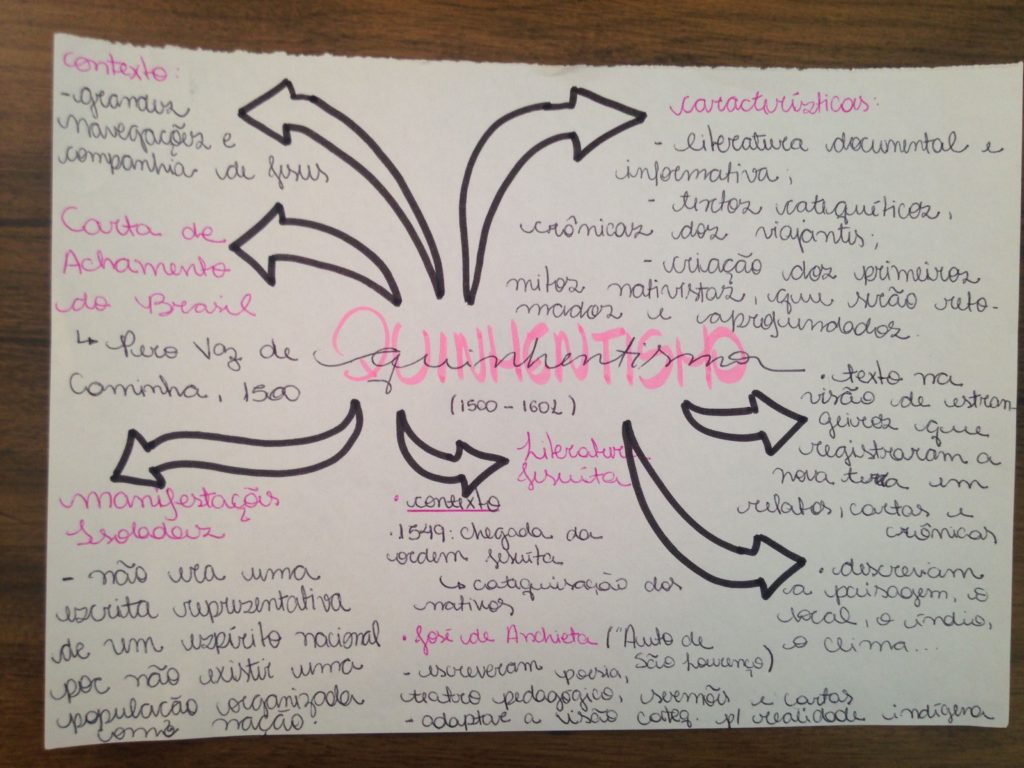 Contexto:
- grandes
navegações e
companhia de Jesus
Carta de
Achamento
do Brasil
↳ Pero Vaz de
Caminha, 1500
manifestações
Isoladas
- não era uma
escrita representativa
de um espírito nacional
por não existir uma
população organizada
como nação.
QUINHENTISMO
quinhentismo
(1500 - 1601)
Literatura
Jesuíta
• contexto
• 1549: chegada da
ordem jesuíta
↳ catequisação dos
nativos
• José de Anchieta ("Auto de
São Lourenço)
- escreveram poesia,
teatro pedagógico, sermões e cartas
- adaptar a visão categ. p/ realidade indígena
características:
- literatura documental e
informativa;
- textos catequéticos,
crônicas dos viajantes;
- criação dos primeiros
mitos nativistas, que serão reto-
mados e aprofundados.
• texto na
visão de estran
geiros que
registraram a
nova terra em
relatos, cartas e
crônicas
• descreviam
a paisagem, o
local, o índio,
o clima...